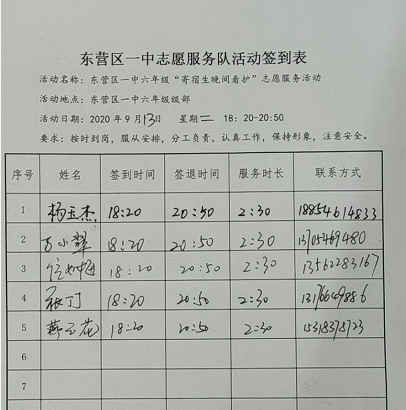 东营区一中志愿服务队活动签到表
活动名称：东营区一中六年级“寄宿生晚间看护”志愿服务活动
活动地点：东营区一中六年级级部
活动日期：2020年9月13日 星期二 18：20-20:50
要求：按时到岗，服从安排，分工负责，认真工作，保持形象，注意安全。
序号 姓名 签到时间 签退时间 服务时长 联系方式
1 杨玉杰 18:20 20:50 2:30 18854614833
2 18:20 20:50 2:30 13705469480
3 18:20 20:50 2:30 13562283167
4 18:20 20:50 2:30 13176649886
5 燕玉花 18:20 20:50 2:30 15318378723
6
7